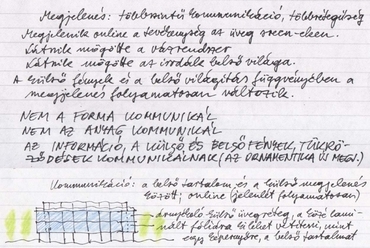 Megjelenés: többszintű kommunikáció, többrétegűség
Megjelenik online a tevékenység az üveg screen-elken.
Látszik mögötte a vázrendszer
Látszik mögötte az irodák belső világa.
A külső fények és a belső világítás függvényében a
megjelenés folyamatosan változik.
NEM A FORMA KOMMUNIKÁL
NEM AZ ANYAG KOMMUNIKÁL
AZ INFORMÁCIÓ, A KÜLSŐ ÉS BELSŐ FÉNYEK, TÜKRÖ-
ZŐDÉSEK KOMMUNIKÁLNAK (AZ ORNAMENTIKA ÚJ MEGJ.)
Kommunikáció: a belső tartalom és a külső megjelenés
között; online (jelenlét folyamatosan)
árnyékoló külső üvegréteg, a közé lami-
nált fóliára ki lehet vetíteni, mint
egy képernyőre, a belső tartalmat